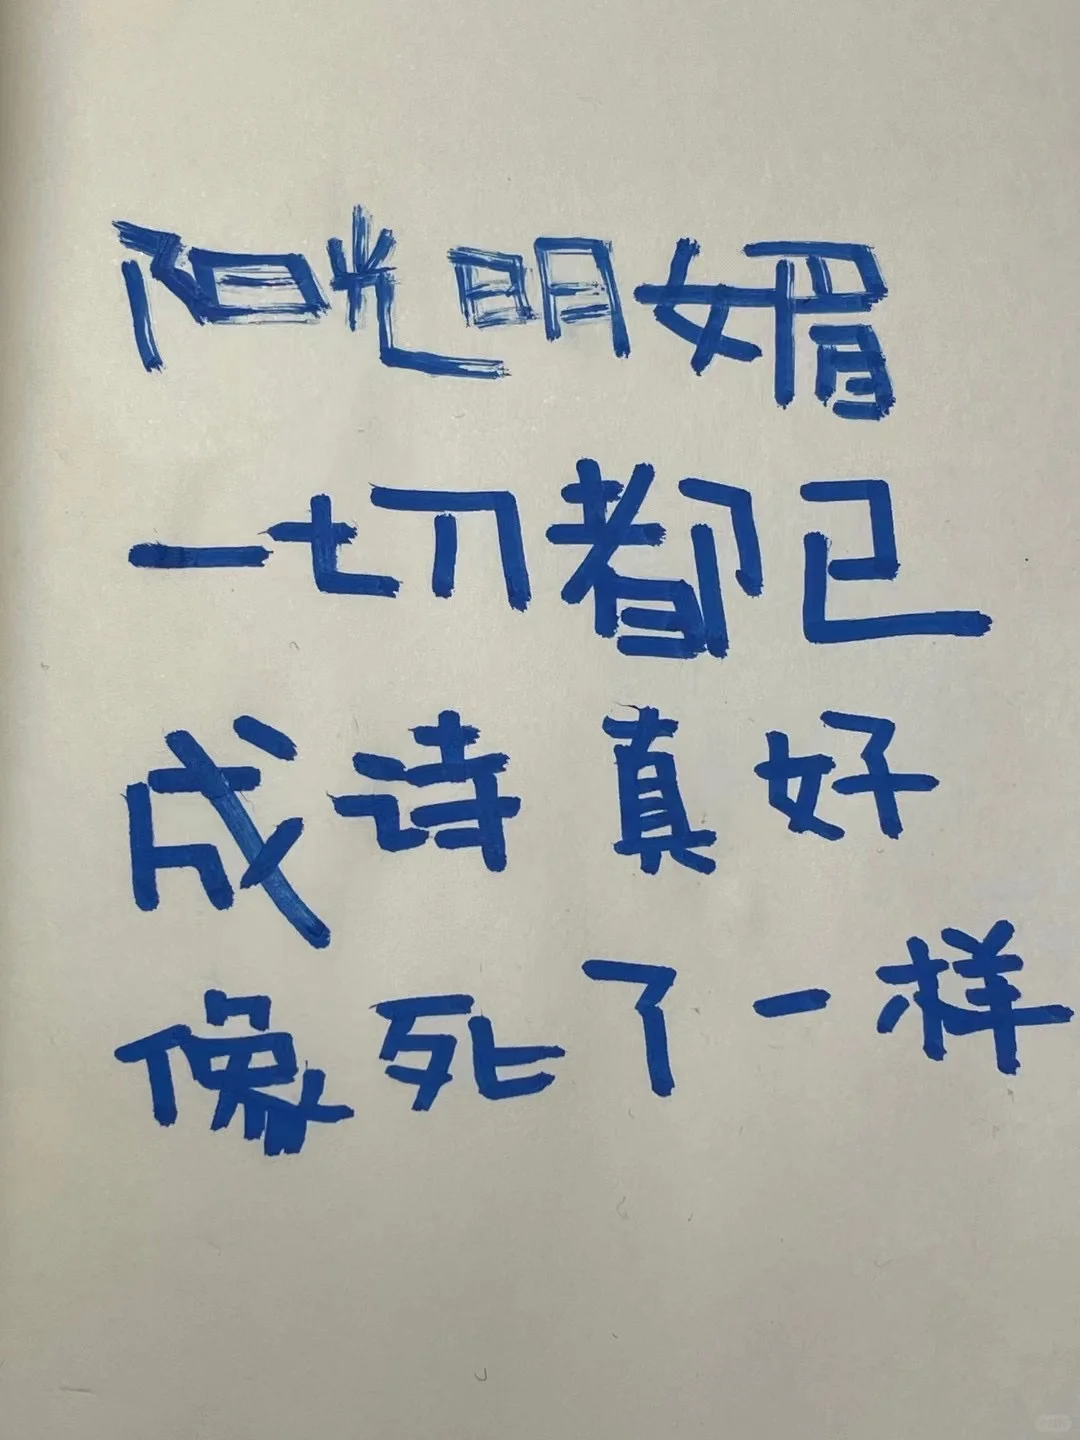 阳光明媚
一切都已
成诗真好
像死了一样